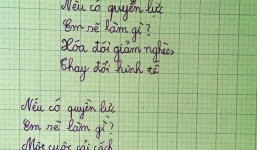 Nếu có quyền lực
Em sẽ làm gì?
Xóa đói giảm nghèo,
Thay đổi kinh tế
Nếu có quyền lực
Em sẽ làm gì?
Một cuộc cải cách